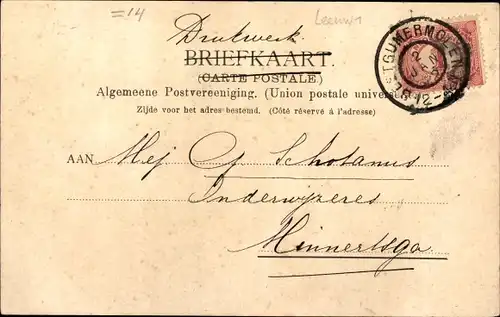 =14
Leeuw
Drukwerk.
BRIEFKAART.
(CARTE POSTALE)
Algemeene Postvereeniging. (Union postale universe
Zijde voor het adres bestemd. (Côté réservé à l'adresse)
AAN Mej Schotanus
Onderwijzeres
Minnertsga